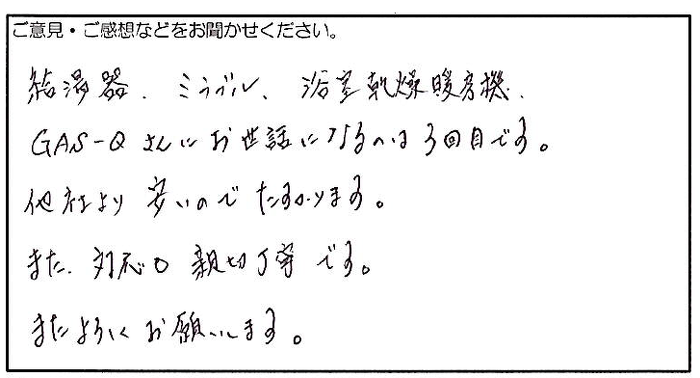 ご意見・ご感想などをお聞かせください。
給湯器、ミラブル、浴室乾燥暖房機、
GAS-Qさんにお世話になるのは3回目です。
他社より安いのでたすかります。
また、対応も親切丁寧です。
またよろしくお願いします。